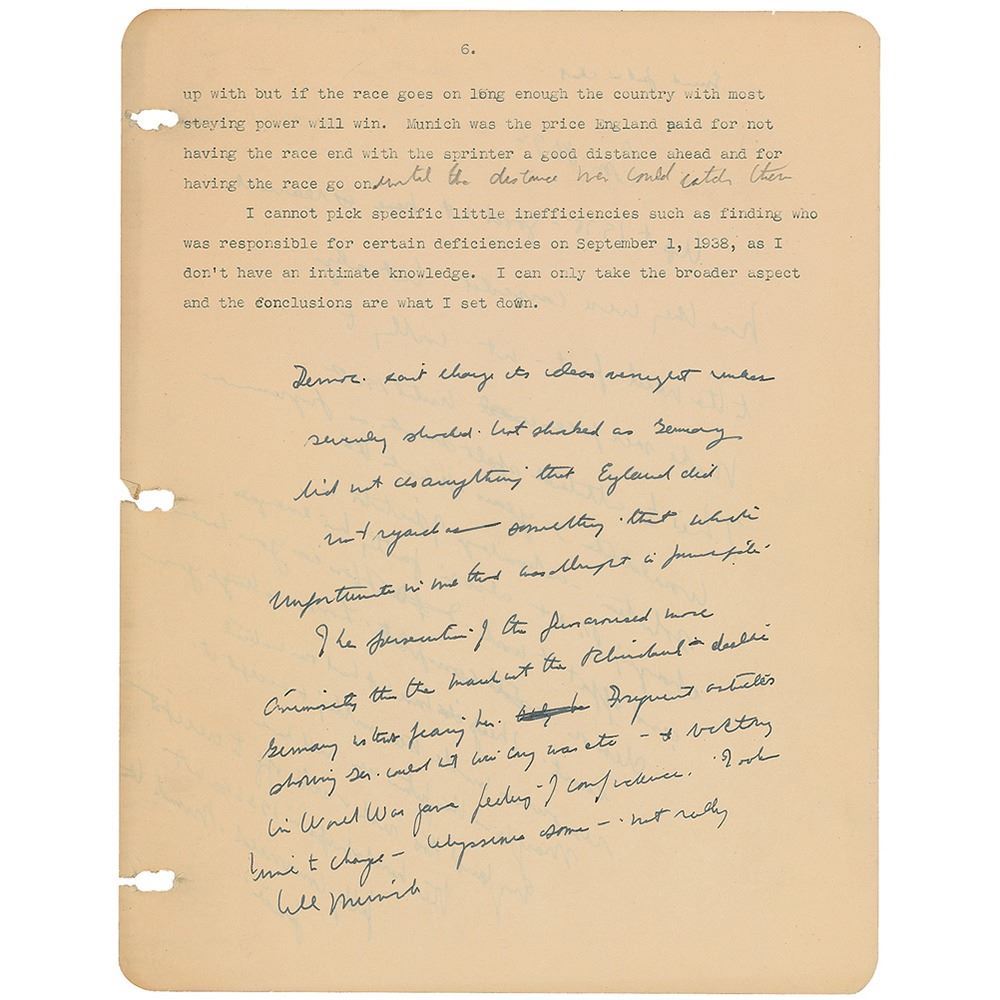 6.
up with but if the race goes on long enough the country with most
staying power will win. Munich was the price England paid for not
having the race end with the sprinter a good distance ahead and for
having the race go on until the distance men could catch them
I cannot pick specific little inefficiencies such as finding who
was responsible for certain deficiencies on September 1, 1938, as I
don't have an intimate knowledge. I can only take the broader aspect
and the conclusions are what I set down.
Democ. can't change its ideas overnight unless
severely shocked. Not shocked as Germany
did not do anything that England did
not regard as something that while
Unfortunate in method was alright in principle.
The persecution of the Jews aroused more
animosity than the march into the Rhineland - dislike
Germany rather than fearing her. Frequent articles
showing Ger. could not win any war etc - + victory
in World War gave feeling of confidence. Took
time to change - Abyssinia some - not really
till Munich